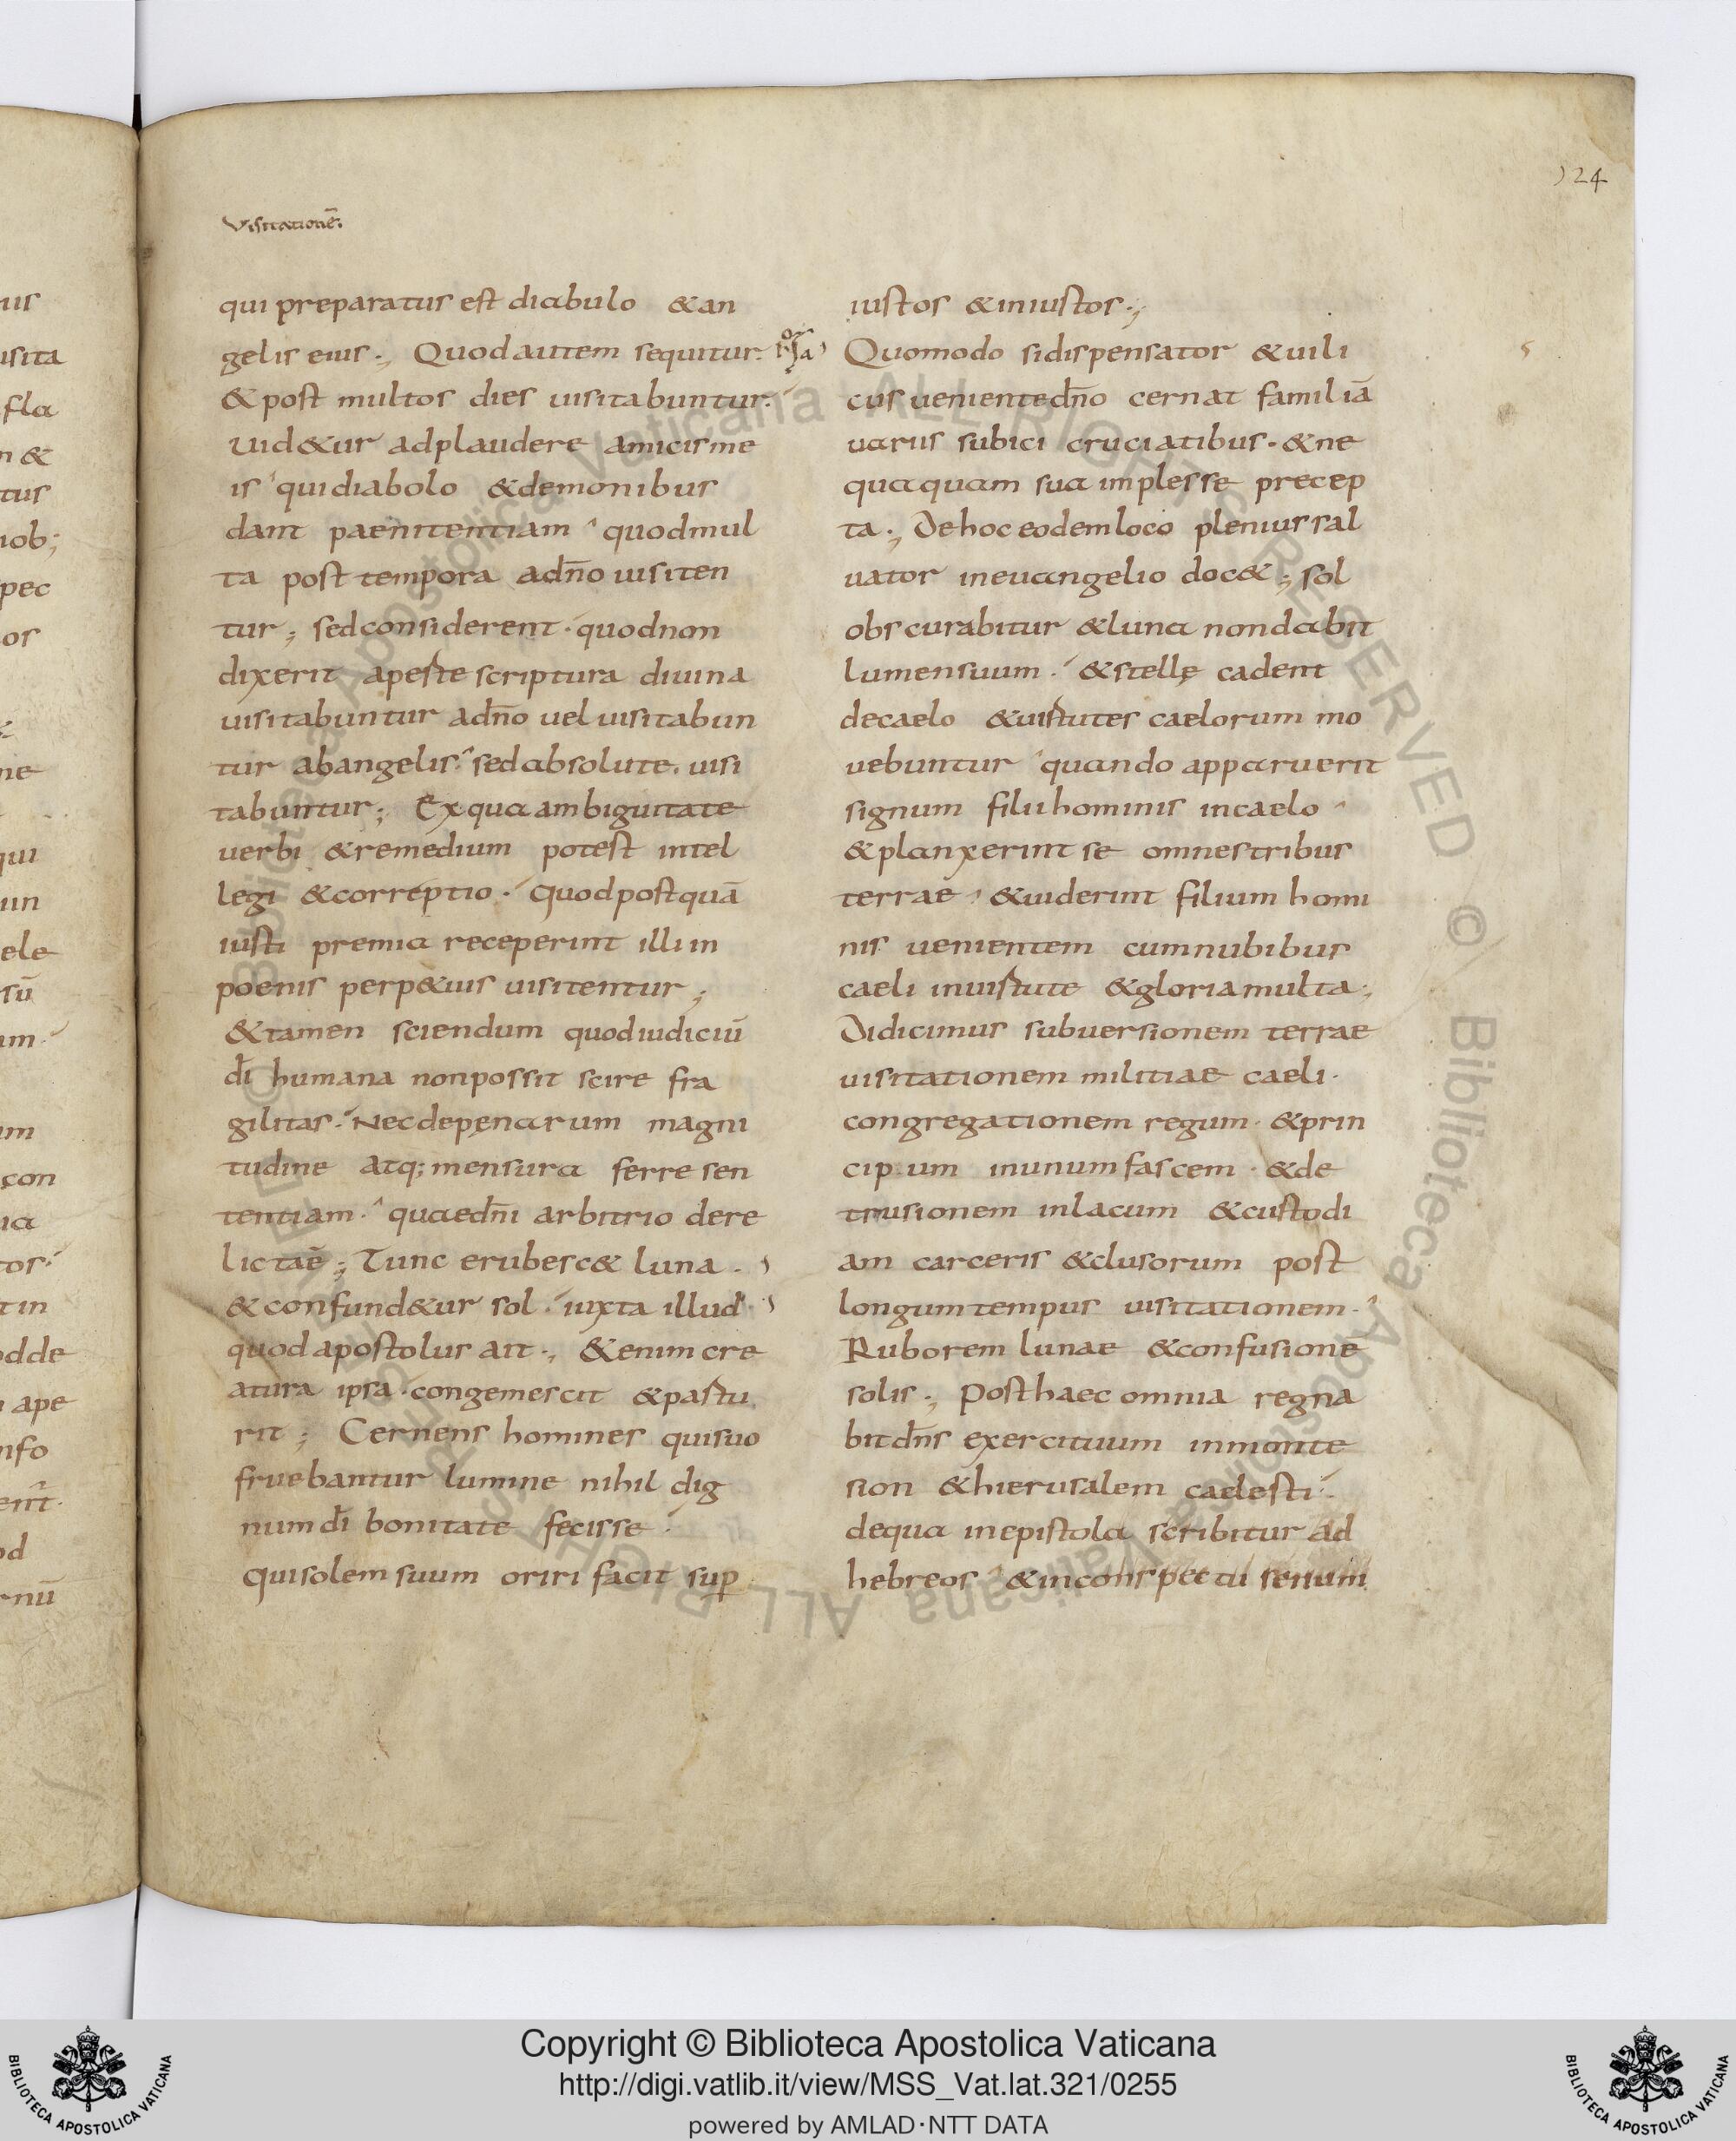 124
Visitationē.
qui preparatus est diabulo & an
gelis eius ·, Quod autem sequitur.
& post multos dies uisitabuntur.
uid&ur adplaudere amicis me
is qui diabolo & demonibus
dant paenitentiam quod mul
ta post tempora a dn̄o uisiten
tur; sed considerent · quod non
dixerit aperte scriptura diuina
uisitabuntur a dn̄o uel uisitabun
tur ab angelis. sed absolute. uisi
tabuntur; Ex qua ambiguitate
uerbi & remedium potest intel
legi & correptio · quod postquā
iusti premia receperint illi in
poenis perp&uis uisitentur;
& tamen sciendum quod iudiciū
dī humana non possit scire fra
gilitas. Nec de pęnarum magni
tudine atq; mensura ferre sen
tentiam · quae dn̄i arbitrio dere
lictaē; Tunc erubesc& luna ·
& confund&ur sol · iuxta illud ·
quod apostolus ait ·, & enim cre
atura ipsa · congemescit & partu
rit; Cernens homines qui suo
fruebantur lumine nihil dig
num dī bonitate fecisse ·
qui solem suum oriri facit sup̄
iustos & iniustos ·,
Quomodo si dispensator & uili
cus ueniente dn̄o cernat familiā
uariis subici cruciatibus · & ne
quaquam sua implesse precep
ta ·, De hoc eodem loco plenius sal
uator in euangelio doc&; sol
obscurabitur & luna non dabit
lumen suum · & stellę cadent
de caelo & uirtutes caelorum mo
uebuntur quando apparuerit
signum filii hominis in caelo
& planxerint se omnes tribus
terrae & uiderint filium homi
nis uenientem cum nubibus
caeli in uirtute & gloria multa;
Didicimus subuersionem terrae
uisitationem militiae caeli ·
congregationem regum · & prin
cipium in unum fascem · & de
trusionem in lacum & custodi
am carceris & clusorum post
longum tempus uisitationem ·
Ruborem lunae & confusionē
solis ·, Post haec omnia regna
bit dn̄s exercituum in monte
sion & hierusalem caelesti ·
de qua in epistola scribitur ad
hebreos & in conspectu senum
us
usita
fla
n &
tus
iob;
pec
or
ne
qui
un
ele
sū
um ·
um
con
ia
tos ·
t in
odde
ape
nfo
od
rnū
© Biblioteca Apostolica Vaticana ALL RIGHTS RESERVED © Biblioteca Apostolica Vaticana ALL RIGHTS RESERVED
Copyright © Biblioteca Apostolica Vaticana
http://digi.vatlib.it/view/MSS_Vat.lat.321/0255
powered by AMLAD·NTT DATA
BIBLIOTECA APOSTOLICA VATICANA
BIBLIOTECA APOSTOLICA VATICANA